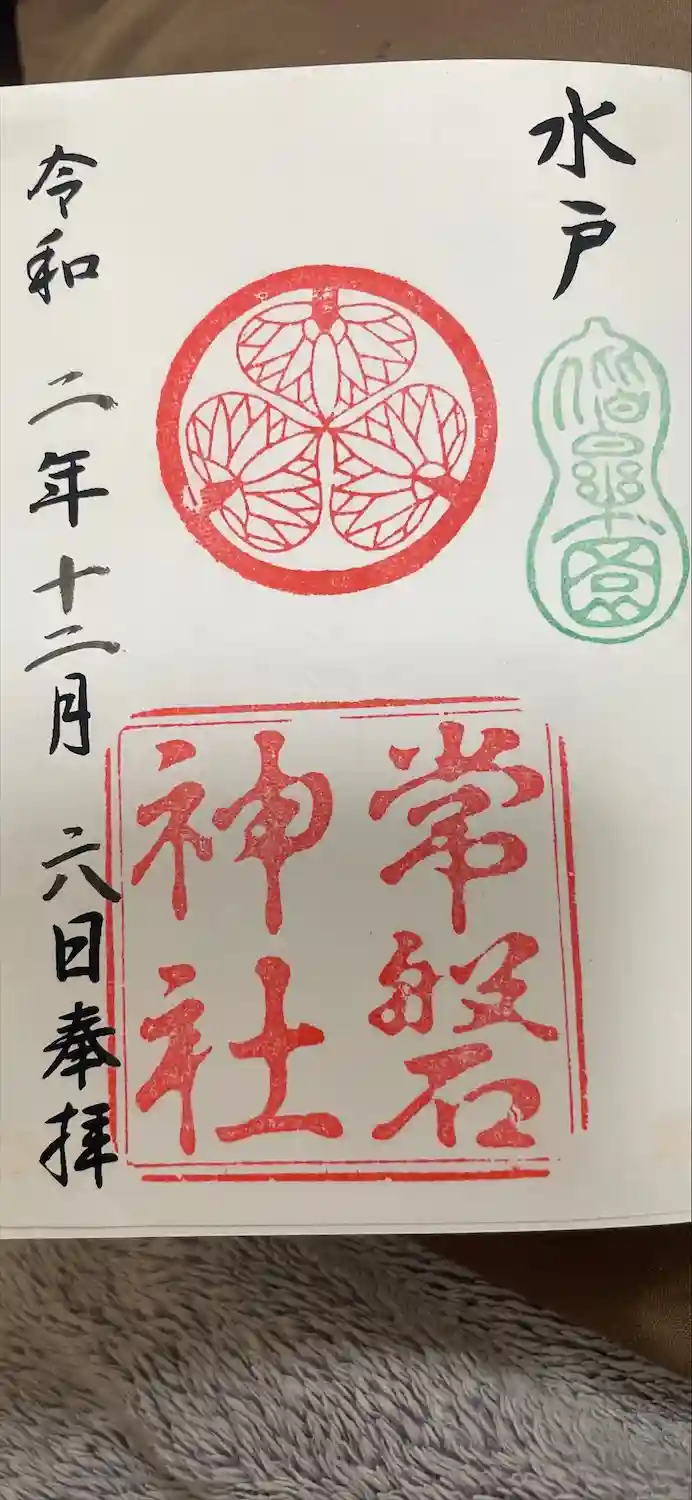 水戸
偕樂園
常磐
神社
令和 二年十二月 六日奉拝